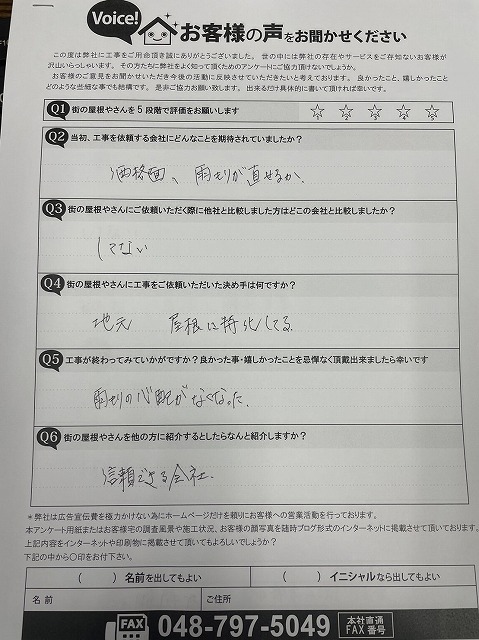 Voice!
お客様の声をお聞かせください
この度は弊社に工事をご用命頂き誠にありがとうございました。世の中には弊社の存在やサービスをご存知ないお客様が
沢山いらっしゃいます。その方たちに弊社をよく知って頂くためのアンケートにご協力頂けないでしょうか。
お客様のご意見をお聞かせいただき今後の活動に反映させていただきたいと考えております。良かったこと、嬉しかったこと
どのような些細な事でも結構です。是非ご協力お願い致します。出来るだけ具体的に書いて頂ければ幸いです。
Q1 街の屋根やさんを5段階で評価をお願いします ☆ ☆ ☆ ☆ ☆
Q2 当初、工事を依頼する会社にどんなことを期待されていましたか?
価格面、雨もりが直せるか、
Q3 街の屋根やさんにご依頼いただく際に他社と比較しました方はどこの会社と比較しましたか?
してない
Q4 街の屋根やさんに工事をご依頼いただいた決め手は何ですか?
地元 屋根に特化してる
Q5 工事が終わってみていかがですか?良かった事・嬉しかったことを忌憚なく頂戴出来ましたら幸いです
雨もりの心配がなくなった.
Q6 街の屋根やさんを他の方に紹介するとしたらなんと紹介しますか?
信頼できる会社.
*弊社は広告宣伝費を極力かけない為にホームページだけを頼りにお客様への営業活動を行っております。
本アンケート用紙またはお客様宅の調査風景や施工状況、お客様の顔写真を随時ブログ形式のインターネットに掲載させて頂いております。
上記内容をインターネットや印刷物に掲載させて頂いてもよろしいでしょうか?
下記の中から〇印をお付下さい。
( )名前を出してもよい ( )イニシャルなら出してもよい
名前 ご住所
FAX 048-797-5049 本社直通FAX番号